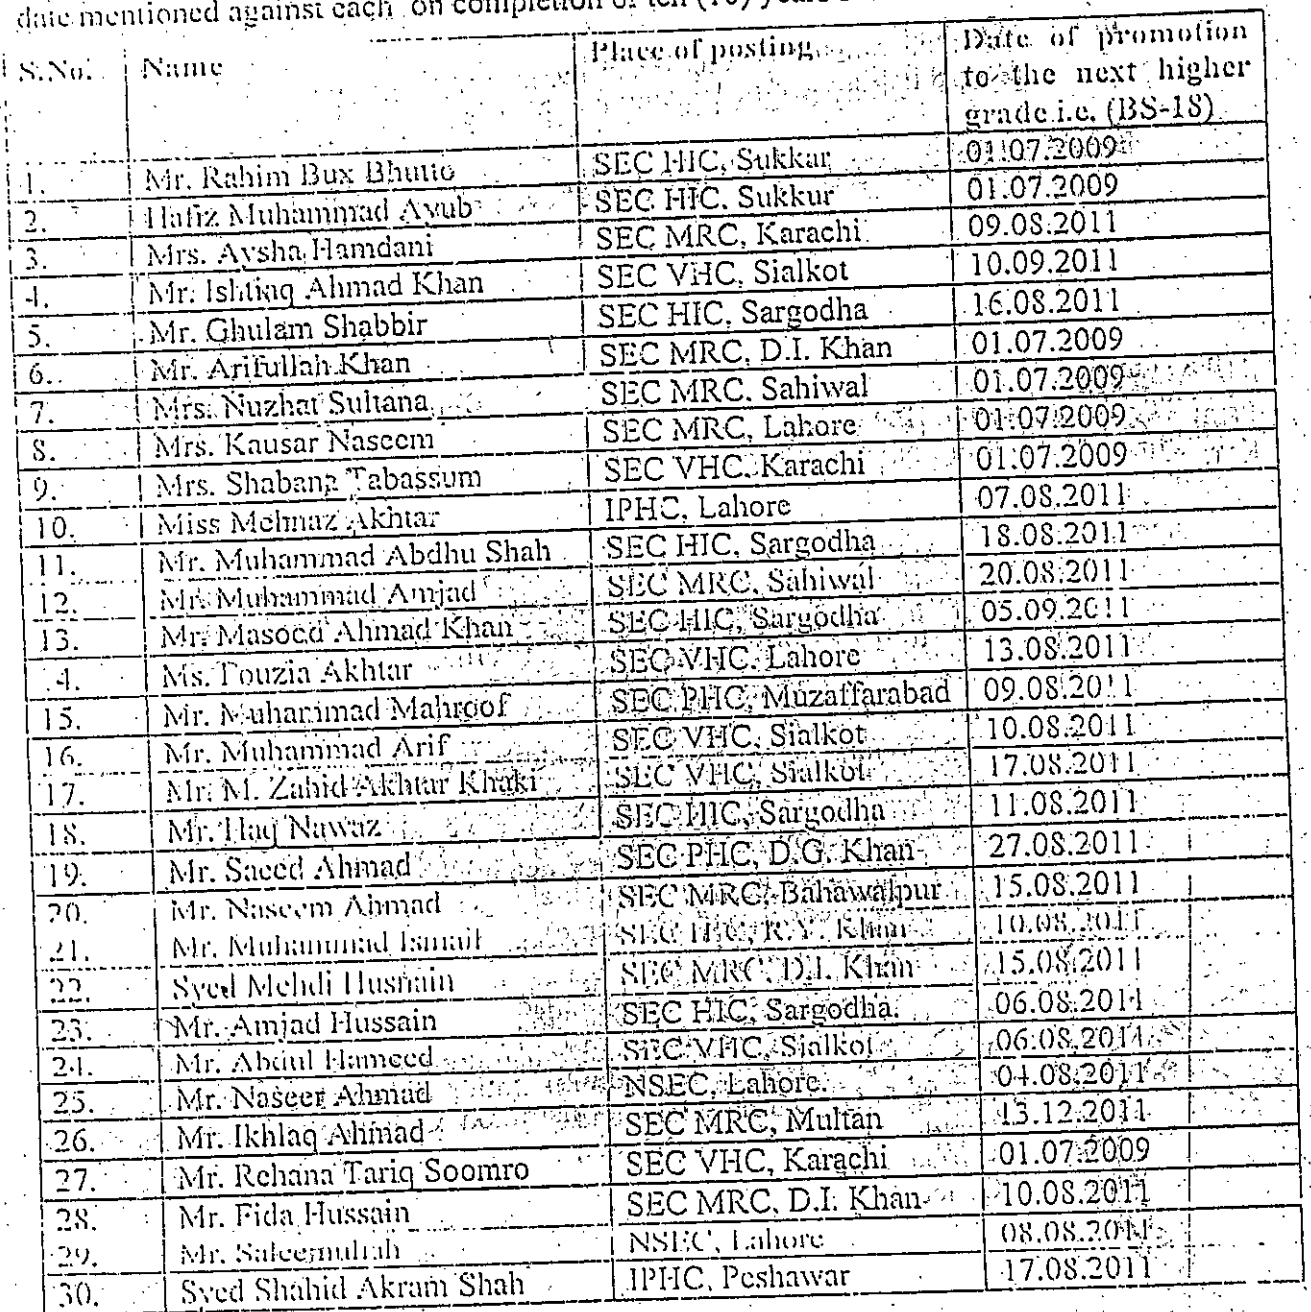 date mentioned against each on completion of ten (10) years
S.No. Name Place of posting Date of promotion
to the next higher
grade i.e. (BS-18)
1. Mr. Rahim Bux Bhutto SEC HIC, Sukkar 01.07.2009
2. Hafiz Muhammad Ayub SEC HIC. Sukkur 01.07.2009
3. Mrs. Aysha Hamdani SEC MRC, Karachi 09.08.2011
4. Mr. Ishtiaq Ahmad Khan SEC VHC, Sialkot 10.09.2011
5. Mr. Ghulam Shabbir SEC HIC, Sargodha 16.08.2011
6. Mr. Arifullah Khan SEC MRC, D.I. Khan 01.07.2009
7. Mrs. Nuzhat Sultana SEC MRC. Sahiwal 01.07.2009
8. Mrs. Kausar Naseem SEC MRC, Lahore 01.07.2009
9. Mrs. Shabana Tabassum SEC VHC. Karachi 01.07.2009
10. Miss Mehnaz Akhtar IPHC, Lahore 07.08.2011
11. Mr. Muhammad Abdhu Shah SEC HIC, Sargodha 18.08.2011
12. Mr. Muhammad Amjad SEC MRC, Sahiwal 20.08.2011
13. Mr. Masood Ahmad Khan SEC HIC, Sargodha 05.09.2011
4. Ms. Fouzia Akhtar SEC VHC. Lahore 13.08.2011
15. Mr. Muhammad Mahroof SEC PHC, Muzaffarabad 09.08.2011
16. Mr. Muhammad Arif SEC VHC, Sialkot 10.08.2011
17. Mr. M. Zahid Akhtar Khaki SEC VHC, Sialkot 17.08.2011
18. Mr. Haq Nawaz SEC HIC, Sargodha 11.08.2011
19. Mr. Saeed Ahmad SEC PHC, D.G. Khan 27.08.2011
20. Mr. Naseem Ahmad SEC MRC, Bahawalpur 15.08.2011
21. Mr. Muhammad Ismail SEC HIC, R.Y. Khan 10.08.2011
22. Syed Mehdi Husnain SEC MRC, D.I. Khan 15.08.2011
23. Mr. Amjad Hussain SEC HIC, Sargodha. 06.08.2011
24. Mr. Abdul Hameed SEC VHC, Sialkot 06.08.2011
25. Mr. Naseer Ahmad NSEC, Lahore. 04.08.2011
26. Mr. Ikhlaq Ahmad SEC MRC, Multan 13.12.2011
27. Mr. Rehana Tariq Soomro SEC VHC, Karachi 01.07.2009
28. Mr. Fida Hussain SEC MRC, D.I. Khan 10.08.2011
29. Mr. Saleemullah NSEC, Lahore 08.08.2011
30. Syed Shahid Akram Shah IPHC, Peshawar 17.08.2011